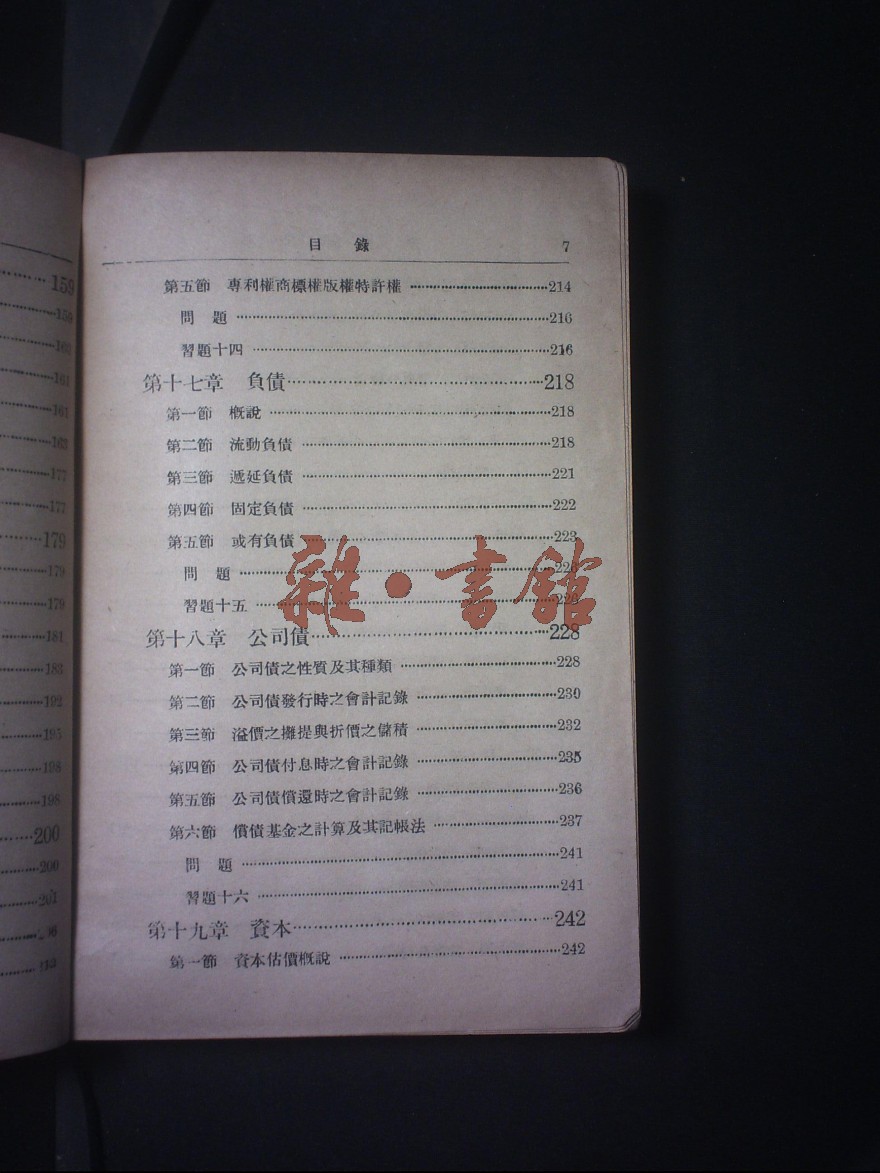 159
159
160
161
161
163
177
177
179
179
179
181
183
192
195
198
198
200
200
201
213
目 錄 7
第五節 專利權商標權版權特許權 214
問 題 216
習題十四 216
第十七章 負債 218
第一節 概說 218
第二節 流動負債 218
第三節 遞延負債 221
第四節 固定負債 222
第五節 或有負債 223
問 題
習題十五
第十八章 公司債 228
第一節 公司債之性質及其種類 228
第二節 公司債發行時之會計記錄 230
第三節 溢價之攤提與折價之儲積 232
第四節 公司債付息時之會計記錄 235
第五節 公司債償還時之會計記錄 236
第六節 償債基金之計算及其記帳法 237
問 題 241
習題十六 241
第十九章 資本 242
第一節 資本估價概說 242
雜·書館